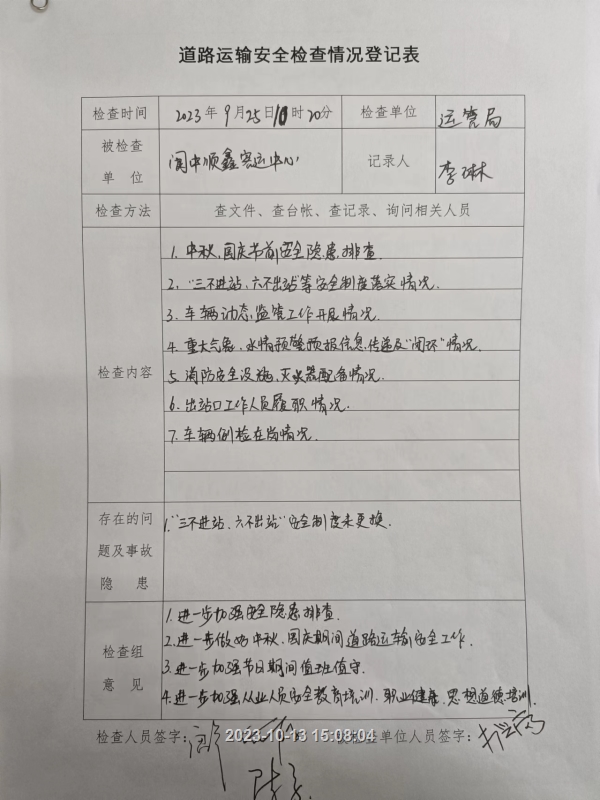 道路运输安全检查情况登记表
检查时间 2023年9月25日10时20分 检查单位 运管局
被检查单位 阆中顺鑫客运中心 记录人 李琳
检查方法 查文件、查台帐、查记录、询问相关人员
检查内容
1. 中秋、国庆节前安全隐患排查.
2. “三不进站、六不出站”等安全制度落实情况.
3. 车辆动态监管工作开展情况.
4. 重大气象、水情预警预报信息传递及“闭环”情况.
5. 消防安全设施、灭火器配备情况.
6. 出站口工作人员履职情况.
7. 车辆例检在岗情况.
存在的问题及事故隐患
1. “三不进站、六不出站”安全制度未更换.
检查组意见
1. 进一步加强安全隐患排查.
2. 进一步做好中秋、国庆期间道路运输安全工作.
3. 进一步加强节日期间值班值守.
4. 进一步加强从业人员安全教育培训、职业健康、思想道德培训.
检查人员签字： 被检查单位人员签字：
2023-10-13 15:08:04